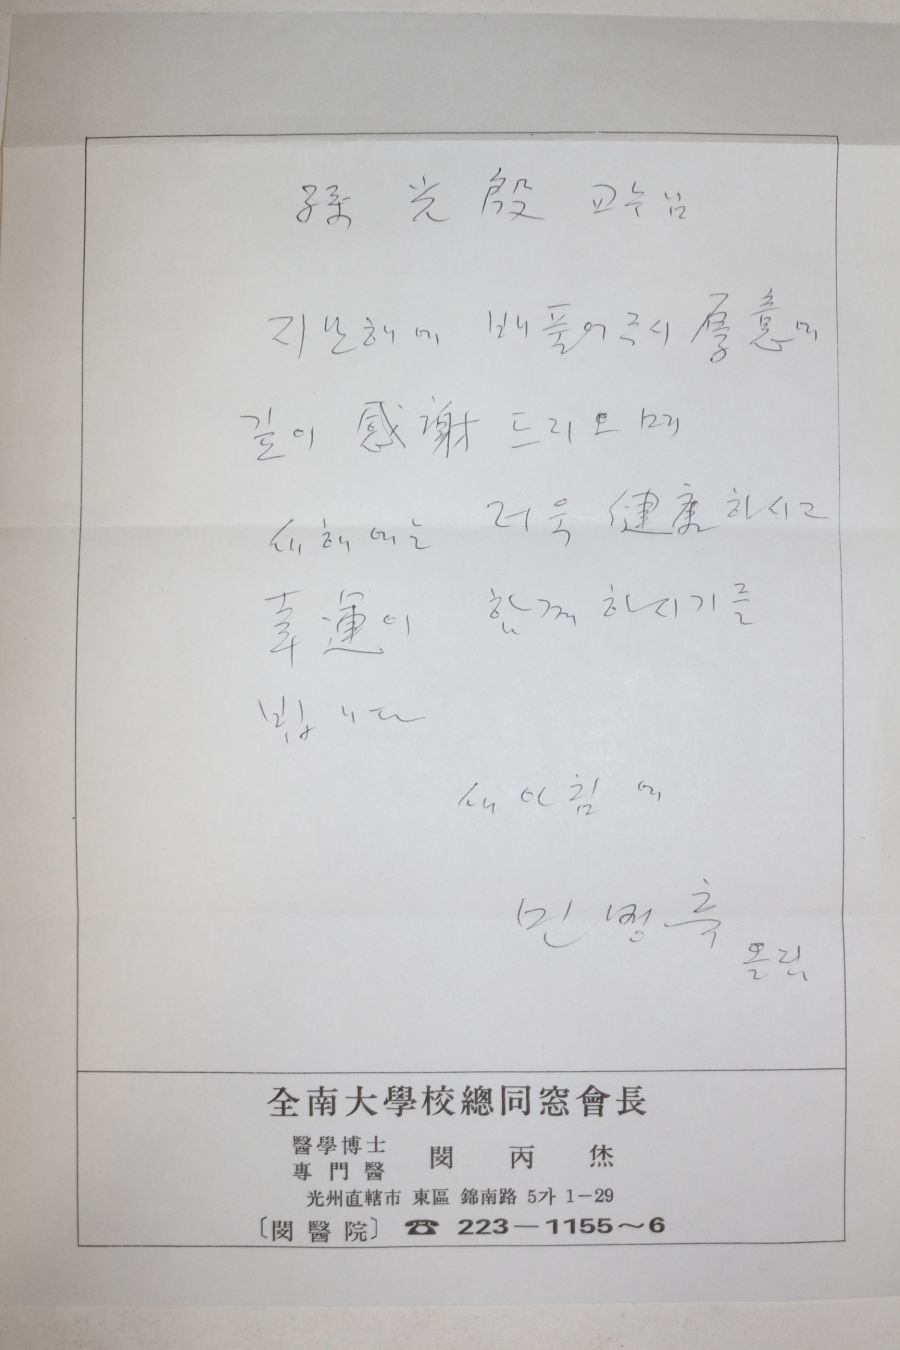 孫 光 殷 교수님
지난해에 베풀어주신 厚意에
깊이 感謝 드리오며
새해에는 더욱 健康하시고
幸運이 함께 하시기를
빕니다
새아침에
민병휴
올림
全南大學校總同窓會長
醫學博士
專門醫 閔 丙 烋
光州直轄市 東區 錦南路 5가 1-29
〔閔醫院〕 ☎ 223-1155~6